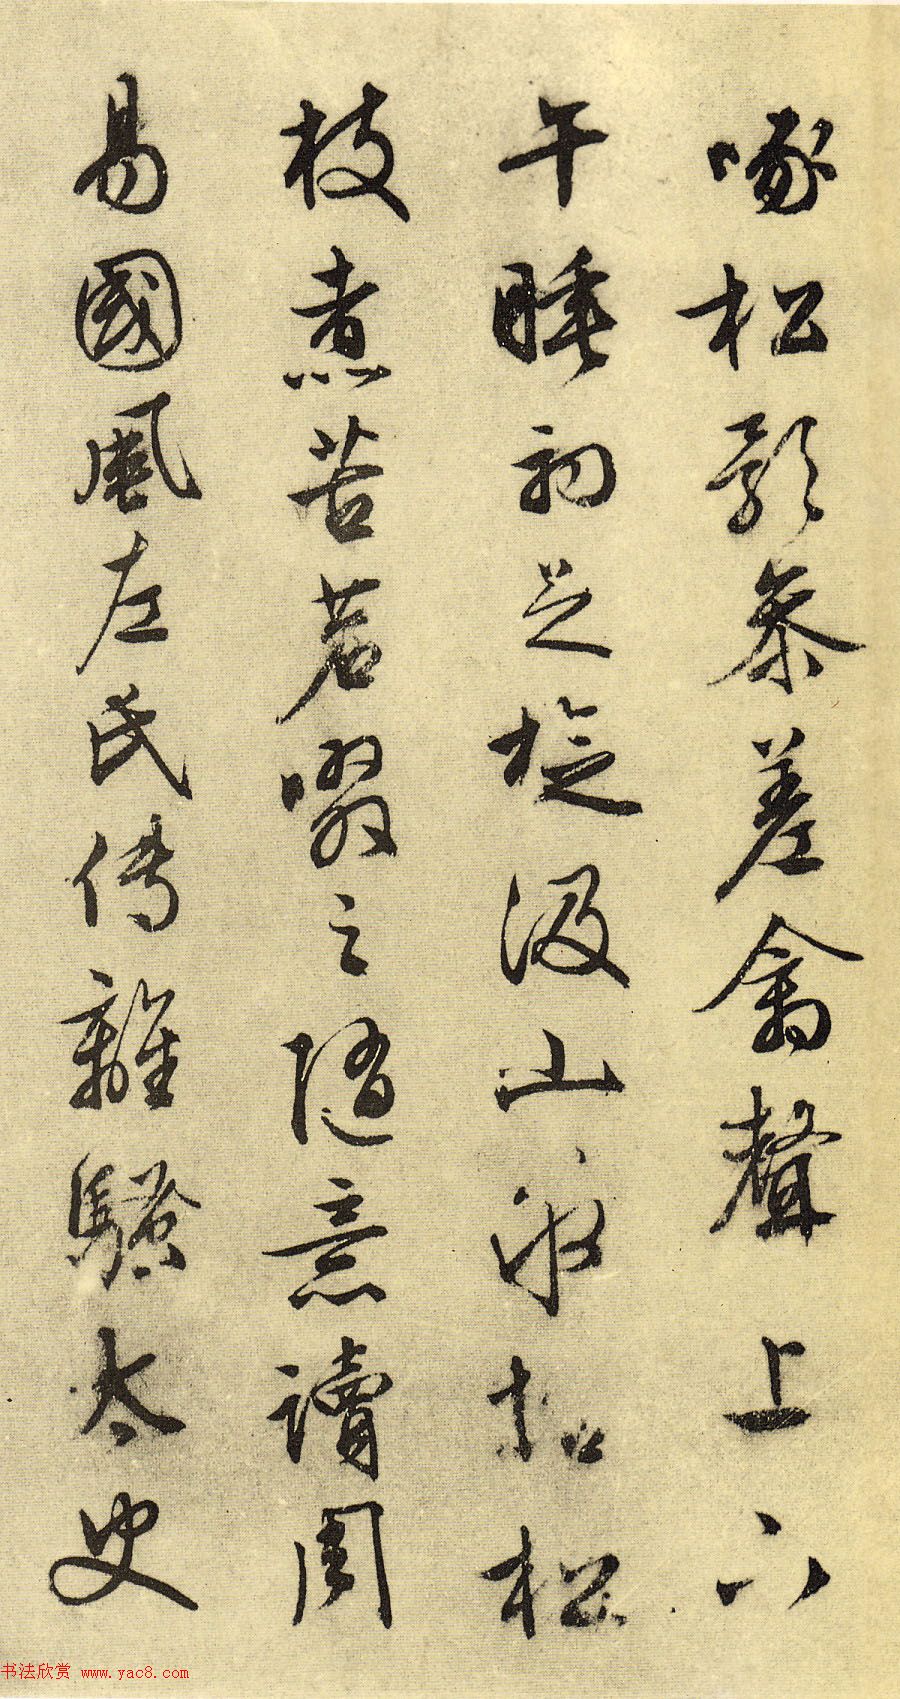 啄松影參差禽聲上下
午睡初足旋汲山泉拾松
枝煮苦茗啜之隨意讀周
易國風左氏傳離騷太史
书法欣赏 www.yac8.com